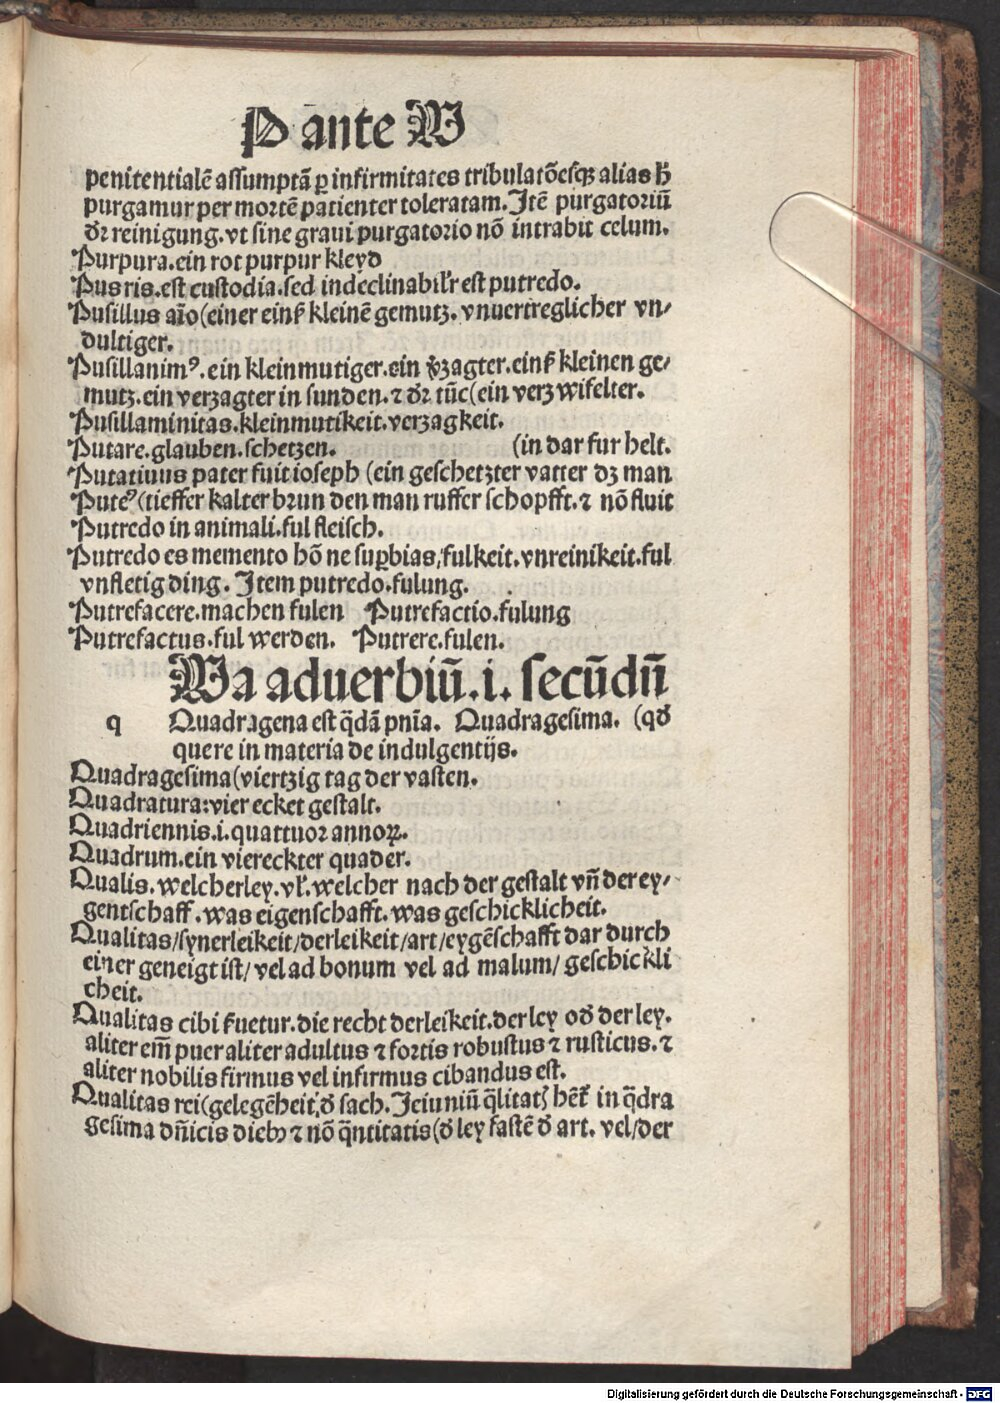 P ante V
penitentialē assumptā ꝑ infirmitates tribulatōesqꝫ alias ħ
purgamur per mortē patienter toleratam. Itē purgatoriū
dr̄ reinigung. vt sine graui purgatorio nō intrabit celum.
Purpura. ein rot purpur kleyd
Pus ris. est custodia. sed indeclinabilr̄ est putredo.
Pusillus aīo (einer einß kleinē gemutz. vnuertreglicher vn⸗
dultiger.
Pusillanimꝰ. ein kleinmutiger. ein v̄zagter. einß kleinen ge⸗
mutz. ein verzagter in sunden. ⁊ dr̄ tūc (ein verzwifelter.
Pusillaminitas. kleinmutikeit. verzagkeit.
Putare. glauben. schetzen. (in dar fur helt.
Putatiuus pater fuit ioseph (ein geschetzter vatter dꝫ man
Puteꝰ (tieffer kalter brun den man ruffer schopfft. ⁊ nō fluit
Putredo in animali. ful fleisch.
Putredo es memento hō ne suꝑbias / fulkeit. vnreinikeit. ful
vnfletig ding. Item putredo. fulung.
Putrefacere. machen fulen Putrefactio. fulung
Putrefactus. ful werden. Putrere. fulen.
QVa aduerbiū. i. secūdū
q Quadragena est q̄dā pnīa. Quadragesima. (qd̄
quere in materia de indulgentijs.
Quadragesima (viertzig tag der vasten.
Quadratura: vier ecket gestalt.
Quadriennis. i. quattuor annoꝝ.
Quadrum. ein viereckter quader.
Qualis. welcherley. vl̄. welcher nach der gestalt vn̄ der ey⸗
gentschaff. was eigenschafft. was geschicklicheit.
Qualitas / synerleikeit / derleikeit / art / eygēschafft dar durch
einer geneigt ist / vel ad bonum vel ad malum / geschickli
cheit.
Qualitas cibi ẜuetur. die recht derleikeit. der ley od̄ der ley.
aliter em̄ puer aliter adultus ⁊ fortis robustus ⁊ rusticus. ⁊
aliter nobilis firmus vel infirmus cibandus est.
Qualitas rei (gelegēheit d̄ sach. Ieiuniū q̄litatꝭ hēt̄ in q̄dra
gesima dn̄icis diebꝰ ⁊ nō q̄ntitatis (d̄ ley fastē d̄ art. vel / der
Digitalisierung gefördert durch die Deutsche Forschungsgemeinschaft - DFG